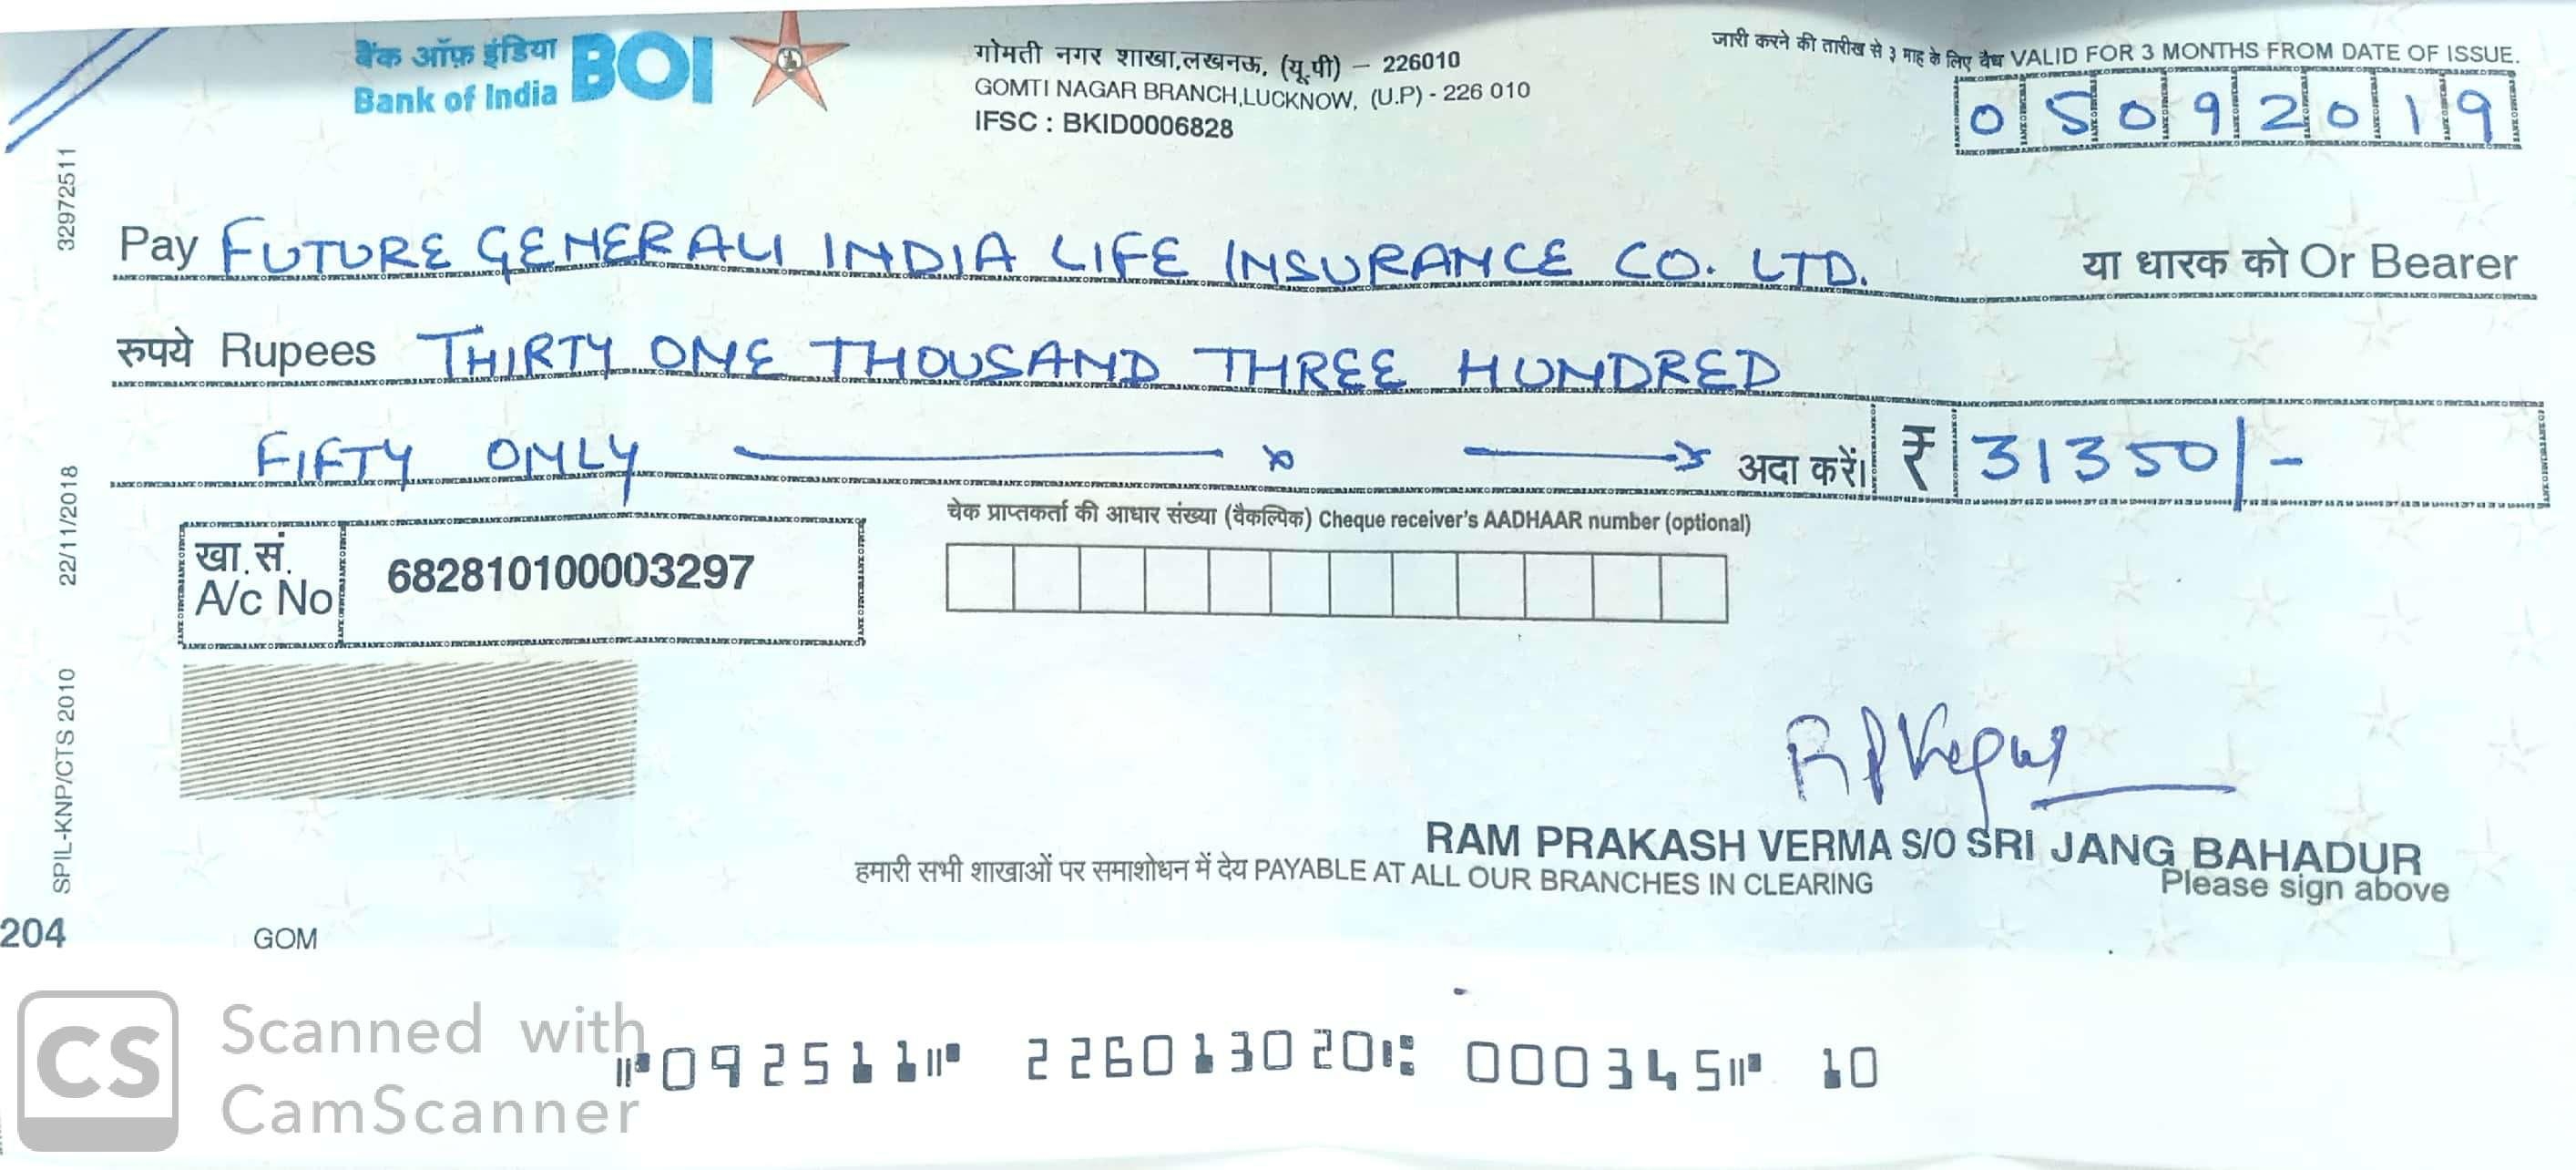 बैंक ऑफ़ इंडिया
Bank of India
BOI
गोमती नगर शाखा,लखनऊ, (यू.पी) – 226010
GOMTI NAGAR BRANCH,LUCKNOW, (U.P) - 226 010
IFSC : BKID0006828
जारी करने की तारीख से ३ माह के लिए वैध VALID FOR 3 MONTHS FROM DATE OF ISSUE.
05092019
32972511
Pay FUTURE GENERALI INDIA LIFE INSURANCE CO. LTD. या धारक को Or Bearer
रुपये Rupees THIRTY ONE THOUSAND THREE HUNDRED
FIFTY ONLY अदा करें। ₹ 31350/-
22/11/2018
चेक प्राप्तकर्ता की आधार संख्या (वैकल्पिक) Cheque receiver's AADHAAR number (optional)
खा.सं.
A/c No
682810100003297
SPIL-KNP/CTS 2010
RAM PRAKASH VERMA S/O SRI JANG BAHADUR
हमारी सभी शाखाओं पर समाशोधन में देय PAYABLE AT ALL OUR BRANCHES IN CLEARING
Please sign above
204
GOM
CS
Scanned with
CamScanner
⑈092511⑈ 226013020⑆ 000345⑈ 10